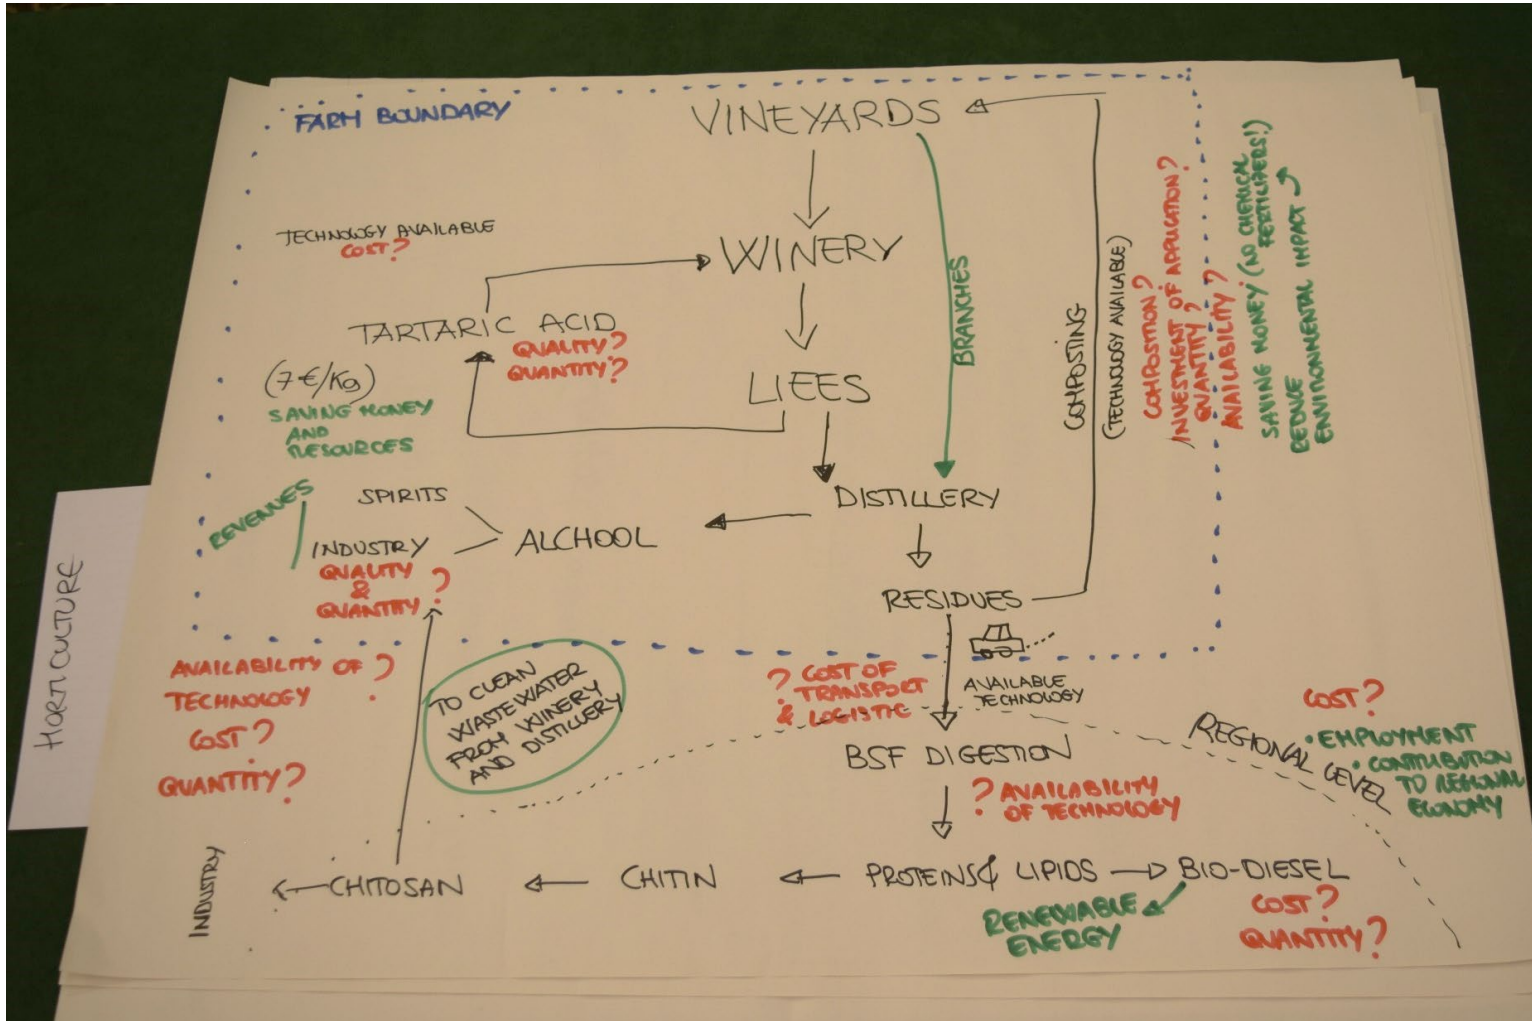 FARM BOUNDARY
VINEYARDS
TECHNOLOGY AVAILABLE
COST?
WINERY
BRANCHES
TARTARIC ACID
QUALITY?
QUANTITY?
(7€/Kg)
SAVING MONEY
AND
RESOURCES
LIEES
COMPOSTING
(TECHNOLOGY AVAILABLE)
COMPOSITION?
INVESTMENT OF APPLICATION?
QUANTITY?
AVAILABILITY?
SAVING MONEY (NO CHEMICAL
FERTILIZERS!)
REDUCE
ENVIRONMENTAL IMPACT
REVENUES
SPIRITS
INDUSTRY
QUALITY
&
QUANTITY?
ALCHOOL
DISTILLERY
RESIDUES
HORTICULTURE
AVAILABILITY OF ?
TECHNOLOGY
COST?
QUANTITY?
TO CLEAN
WASTEWATER
FROM WINERY
AND DISTILLERY
? COST OF
TRANSPORT
& LOGISTIC
AVAILABLE
TECHNOLOGY
BSF DIGESTION
? AVAILABILITY
OF TECHNOLOGY
REGIONAL LEVEL
COST?
• EMPLOYMENT
• CONTRIBUTION
TO REGIONAL
ECONOMY
INDUSTRY
CHITOSAN
CHITIN
PROTEINS & LIPIDS
BIO-DIESEL
RENEWABLE
ENERGY
COST?
QUANTITY?